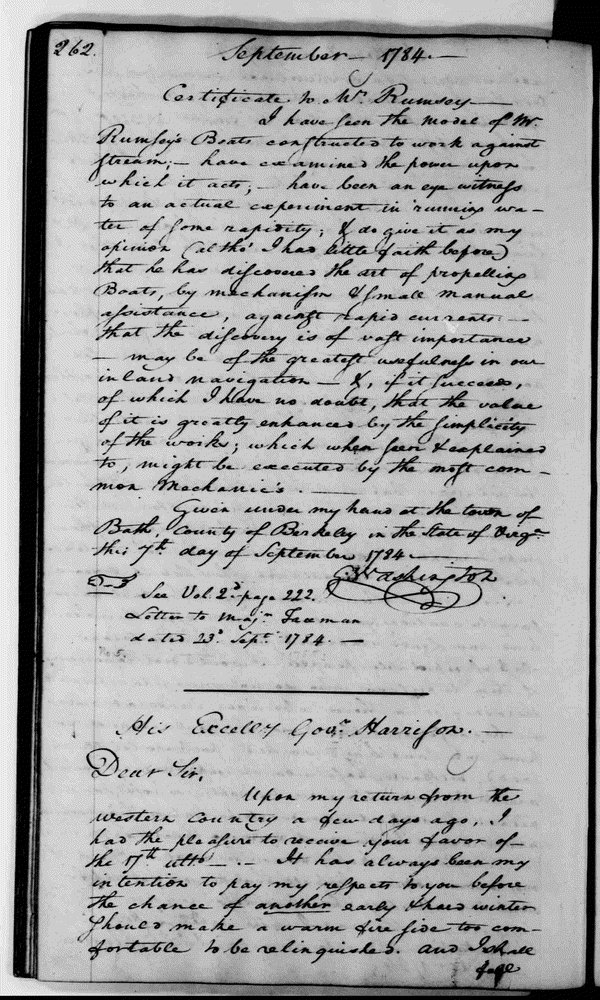 262.
September — 1784. —
Certificate to Mr. Rumsey —
I have seen the model of Mr.
Rumsey's Boats constructed to work against
stream; — have examined the power upon
which it acts; — have been an eye witness
to an actual experiment in running wa-
ter of some rapidity; & do give it as my
opinion (altho' I had little faith before)
that he has discovered the art of propelling
Boats, by mechanism & small manual
assistance, against rapid currents: —
that the discovery is of vast importance
— may be of the greatest usefulness in our
inland navigation — &, if it succeeds,
of which I have no doubt, that the value
of it is greatly enhanced by the simplicity
of the works; which when seen & explained
to, might be executed by the most com-
mon Mechanic's. —
Given under my hand at the town of
Bath, County of Berkeley in the State of Virga.
this 7th day of September 1784. —
G: Washington
See Vol 2d. page 222.
Letter to Majr. Freeman
dated 23d. Sepr. 1784. —
His Excelly Govr. Harrison. —
Dear Sir,
Upon my return from the
western Country a few days ago, I
had the pleasure to receive your favor of
the 17th ulto. — It has always been my
intention to pay my respects to you before
the chance of another early & hard winter
should make a warm fire side too com-
fortable to be relinquished. and I shall
feel